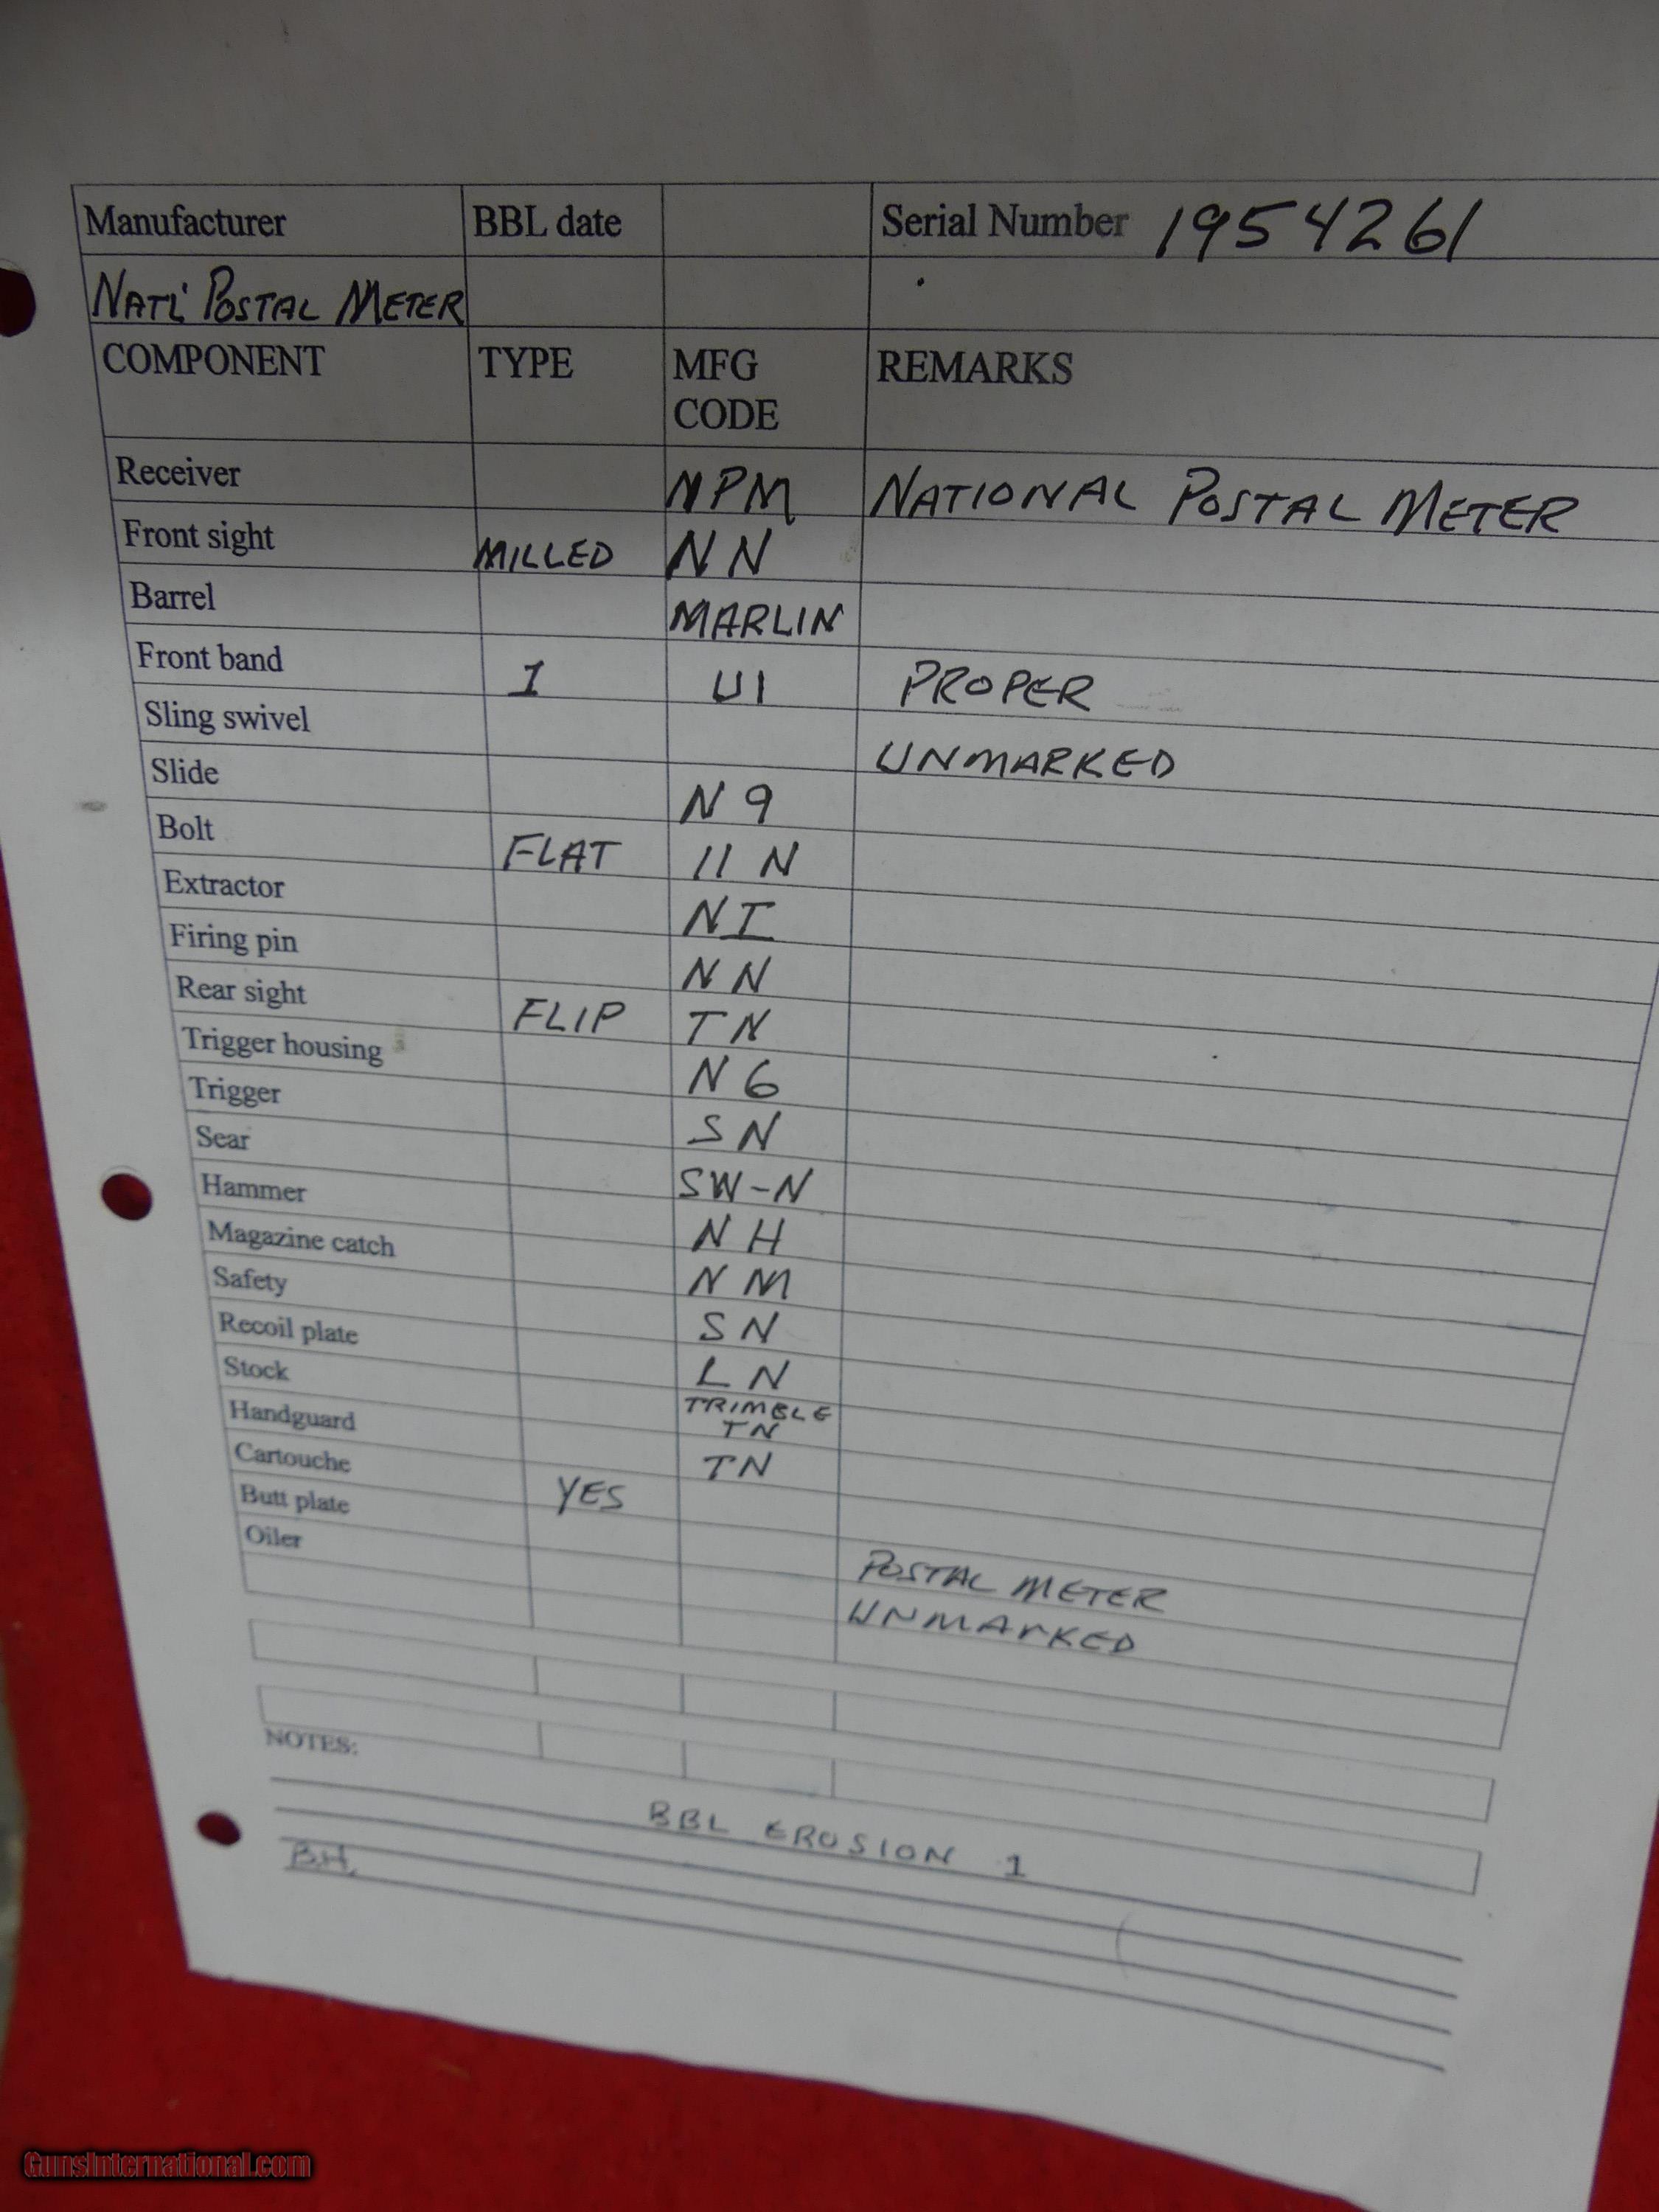 Manufacturer BBL date Serial Number 1954261
NATL' POSTAL METER
COMPONENT TYPE MFG CODE REMARKS
Receiver NPM NATIONAL POSTAL METER
Front sight MILLED NN
Barrel MARLIN
Front band 1 UI PROPER
Sling swivel UNMARKED
Slide N9
Bolt FLAT 11 N
Extractor NI
Firing pin NN
Rear sight FLIP TN
Trigger housing N6
Trigger SN
Sear SW-N
Hammer NH
Magazine catch NM
Safety SN
Recoil plate LN
Stock TRIMBLE TN
Handguard TN
Cartouche YES
Butt plate POSTAL METER
Oiler UNMARKED
NOTES:
BBL EROSION 1
B.H.
GunsInternational.com